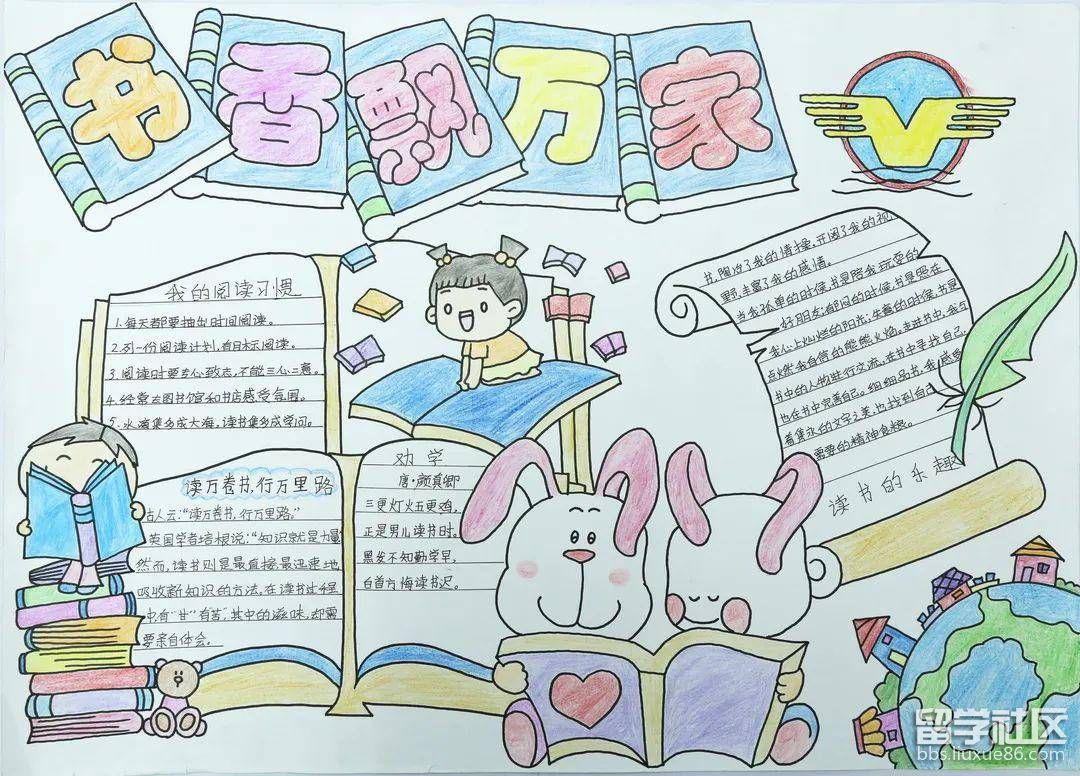 书香飘万家
我的阅读习惯
1.每天都要抽出时间阅读。
2.列一份阅读计划,有目标阅读。
3.阅读时要专心致志,不能三心二意。
4.经常去图书馆和书店感受氛围。
5.水滴集多成大海,读书集多成学问。
读万卷书,行万里路
古人云:“读万卷书,行万里路。”
英国学者培根说:“知识就是力量
然而,读书则是最直接最迅速地
吸收新知识的方法,在读书过程
中有“甘”有苦,其中的滋味,却需
要亲自体会。
劝学
唐·颜真卿
三更灯火五更鸡,
正是男儿读书时。
黑发不知勤学早,
白首方悔读书迟。
书,陶冶了我的情操,开阔了我的视
野,丰富了我的感情。
当我孤单的时候,书是陪我玩耍的
好朋友;郁闷的时候,书是照在
我心上灿烂的阳光;失意的时候,书是
点燃我自信的熊熊火焰。走进书中,我与
书中的人物进行交流,在书中寻找自己
也在书中完善自己。细细品书,我感受
着隽永的文字之美,也找到自己
需要的精神食粮。
读书的乐趣
留学社区
bbs.liuxue86.com